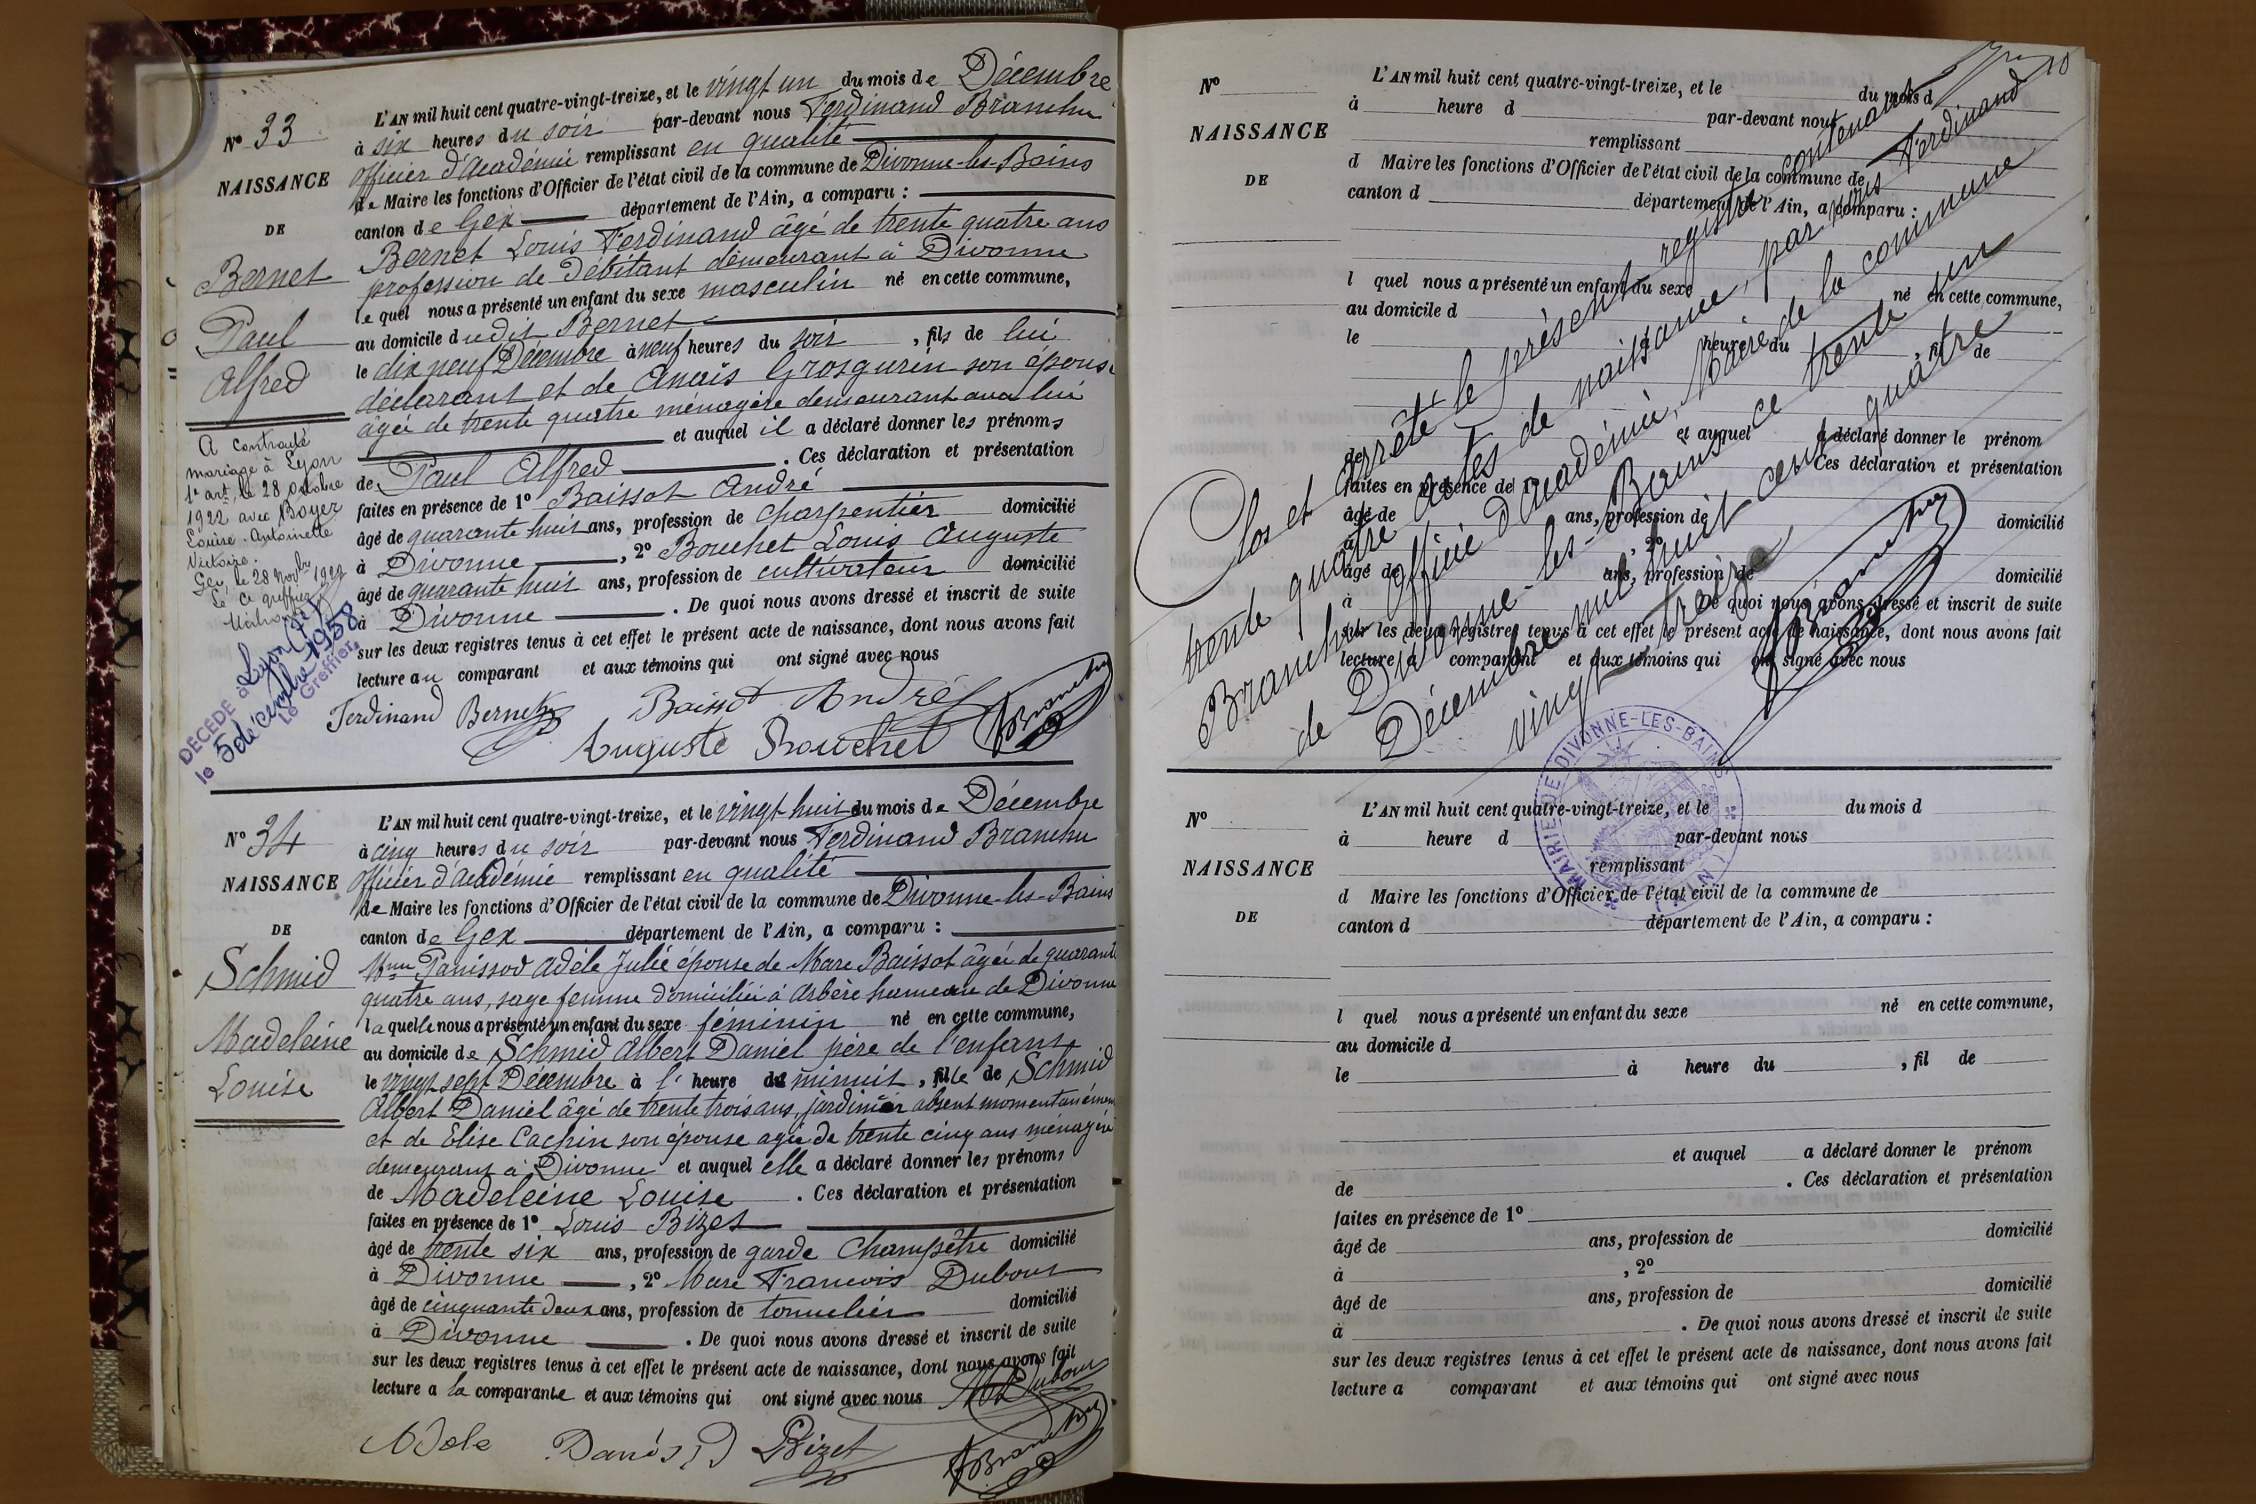 L'AN mil huit cent quatre-vingt-treize, et le vingt un du mois de Décembre
N° 33
à six heures du soir par-devant nous Ferdinand Branchu
Officier d'Académie remplissant en qualité
NAISSANCE
de Maire les fonctions d'Officier de l'état civil de la commune de Divonne-les-Bains
DE
canton de Gex département de l'Ain, a comparu :
Bernet Louis Ferdinand âgé de trente quatre ans
Bernet
profession de débitant demeurant à Divonne
lequel nous a présenté un enfant du sexe masculin né en cette commune,
Paul
au domicile dudit Bernet
Alfred
le dix neuf Décembre à neuf heures du soir, fils de lui
déclarant et de Anaïs Grosgurin son épouse
âgée de trente quatre ménagère demeurant avec lui
et auquel il a déclaré donner les prénoms
de Paul Alfred. Ces déclaration et présentation
faites en présence de 1° Baissot André
âgé de quarante huit ans, profession de charpentier domicilié
à Divonne, 2° Bouchet Louis Auguste
âgé de quarante huit ans, profession de cultivateur domicilié
à Divonne. De quoi nous avons dressé et inscrit de suite
sur les deux registres tenus à cet effet le présent acte de naissance, dont nous avons fait
lecture au comparant et aux témoins qui ont signé avec nous
A contracté
mariage à Lyon
1er art, le 28 octobre
1922 avec Boyer
Louise-Antoinette
Victoire.
Gex, le 28 Novbre 1922
Le Greffier
DÉCÉDÉ à Lyon
le 5 décembre 1958
Le Greffier,
Ferdinand Bernet Baissot André
Auguste Bouchet FBranchu
L'AN mil huit cent quatre-vingt-treize, et le vingt huit du mois de Décembre
N° 34
à cinq heures du soir par-devant nous Ferdinand Branchu
Officier d'Académie remplissant en qualité
NAISSANCE
de Maire les fonctions d'Officier de l'état civil de la commune de Divonne-les-Bains
DE
canton de Gex département de l'Ain, a comparu :
Mme Panissod Adèle Julie épouse de Marc Baissot âgée de quarante
Schmid
quatre ans, sage femme domiciliée à Arbère hameau de Divonne
laquelle nous a présenté un enfant du sexe féminin né en cette commune,
Madeleine
au domicile de Schmid Albert Daniel père de l'enfant
Louise
le vingt sept Décembre à l' heure de minuit, fille de Schmid
Albert Daniel âgé de trente trois ans, jardinier absent momentanément
et de Elise Cachin son épouse agée de trente cinq ans ménagère
demeurant à Divonne et auquel elle a déclaré donner les prénoms
de Madeleine Louise. Ces déclaration et présentation
faites en présence de 1° Louis Bizet
âgé de trente six ans, profession de garde champêtre domicilié
à Divonne, 2° Marc François Dubout
âgé de cinquante deux ans, profession de tonnelier domicilié
à Divonne. De quoi nous avons dressé et inscrit de suite
sur les deux registres tenus à cet effet le présent acte de naissance, dont nous avons fait
lecture a la comparante et aux témoins qui ont signé avec nous
Adele Bizet FBranchu
10
L'AN mil huit cent quatre-vingt-treize, et le du mois d
N°
à heure d par-devant nous
remplissant
NAISSANCE
d Maire les fonctions d'Officier de l'état civil de la commune de
DE
canton d département de l'Ain, a comparu :
l quel nous a présenté un enfant du sexe né en cette commune,
au domicile d
le heure du , fil de
et auquel a déclaré donner le prénom
de Ces déclaration et présentation
faites en présence de 1°
âgé de ans, profession de domicilié
à , 2°
âgé de ans, profession de domicilié
à De quoi nous avons dressé et inscrit de suite
sur les deux registres tenus à cet effet le présent acte de naissance, dont nous avons fait
lecture a comparant et aux témoins qui ont signé avec nous
Clos et arrêté le présent registre contenant
trente quatre actes de naissance, par nous Ferdinand
Branchu officier d'Académie, Maire de la commune
de Divonne-les-Bains ce trente un
Décembre mil huit cent quatre
vingt-treize
FBranchu
MAIRIE DE DIVONNE-LES-BAINS (AIN)
L'AN mil huit cent quatre-vingt-treize, et le du mois d
N°
à heure d par-devant nous
remplissant
NAISSANCE
d Maire les fonctions d'Officier de l'état civil de la commune de
DE
canton d département de l'Ain, a comparu :
l quel nous a présenté un enfant du sexe né en cette commune,
au domicile d
le à heure du , fil de
et auquel a déclaré donner le prénom
de . Ces déclaration et présentation
faites en présence de 1°
âgé de ans, profession de domicilié
à , 2°
âgé de ans, profession de domicilié
à . De quoi nous avons dressé et inscrit de suite
sur les deux registres tenus à cet effet le présent acte de naissance, dont nous avons fait
lecture a comparant et aux témoins qui ont signé avec nous